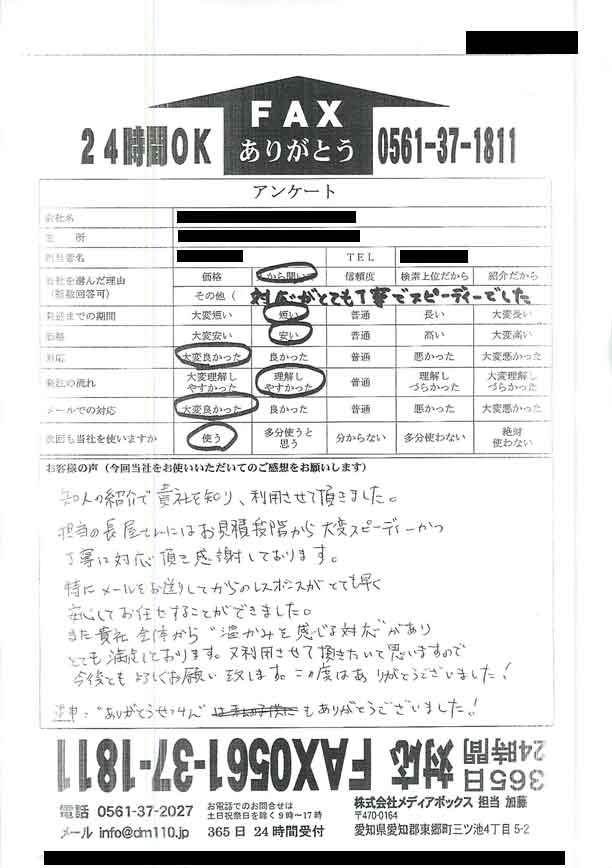 FAX
ありがとう
24時間OK
0561-37-1811
アンケート
会社名
住 所
担当者名 TEL
当社を選んだ理由
(複数回答可)
価格 から聞いて 信頼度 検索上位だから 紹介だから
その他( 対応がとても丁寧でスピーディーでした
発送までの期間 大変短い 短い 普通 長い 大変長い
価格 大変安い 安い 普通 高い 大変高い
対応 大変良かった 良かった 普通 悪かった 大変悪かった
発注の流れ 大変理解しやすかった 理解しやすかった 普通 理解しづらかった 大変理解しづらかった
メールでの対応 大変良かった 良かった 普通 悪かった 大変悪かった
次回も当社を使いますか 使う 多分使うと思う 分からない 多分使わない 絶対使わない
お客様の声(今回当社をお使いいただいてのご感想をお願いします)
知人の紹介で貴社を知り、利用させて頂きました。
担当の長屋さんにはお見積段階から大変スピーディーかつ
丁寧に対応頂き感謝しております。
特にメールをお送りしてからのレスポンスがとても早く
安心してお任せすることができました。
また貴社全体から“温かみを感じる対応”があり
とても満足しております。又利用させて頂きたいて思いますので
今後ともよろしくお願い致します。この度はありがとうございました!
追申:“ありがとうせっけん” もありがとうございました!!
365日
24時間 対応 FAX0561-37-1811
電話 0561-37-2027
メール info@dm110.jp
お電話でのお問合せは
土日祝祭日を除く9時〜17時
365日 24時間受付
株式会社メディアボックス 担当 加藤
〒470-0164
愛知県愛知郡東郷町三ツ池4丁目 5-2